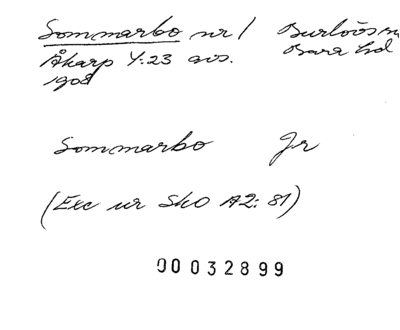 Sommarbo nr 1 Burlövs sn
Åkarp 4:23 avs. Bara hd
1908
Sommarbo Jr
(Exc ur Sko A2: 81)
00032899